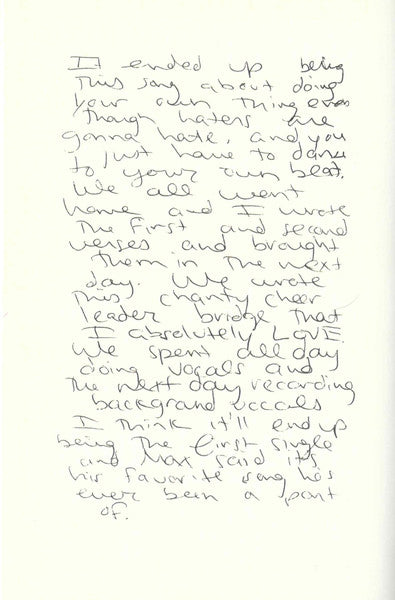 It ended up being
this song about doing
your own thing even
though haters are
gonna hate, and you
just have to dance
to your own beat.
We all went
home and I wrote
the first and second
verses and brought
them in the next
day. We wrote
this chanty cheer
leader bridge that
I absolutely LOVE.
We spent all day
doing vocals and
the next day recording
backgrand vocals
I think it'll end up
being the first single
and Max said it's
his favorite song he's
ever been a part
of.